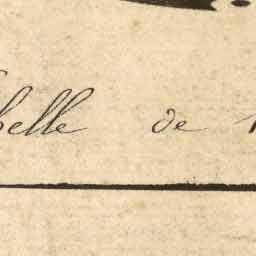 belle de